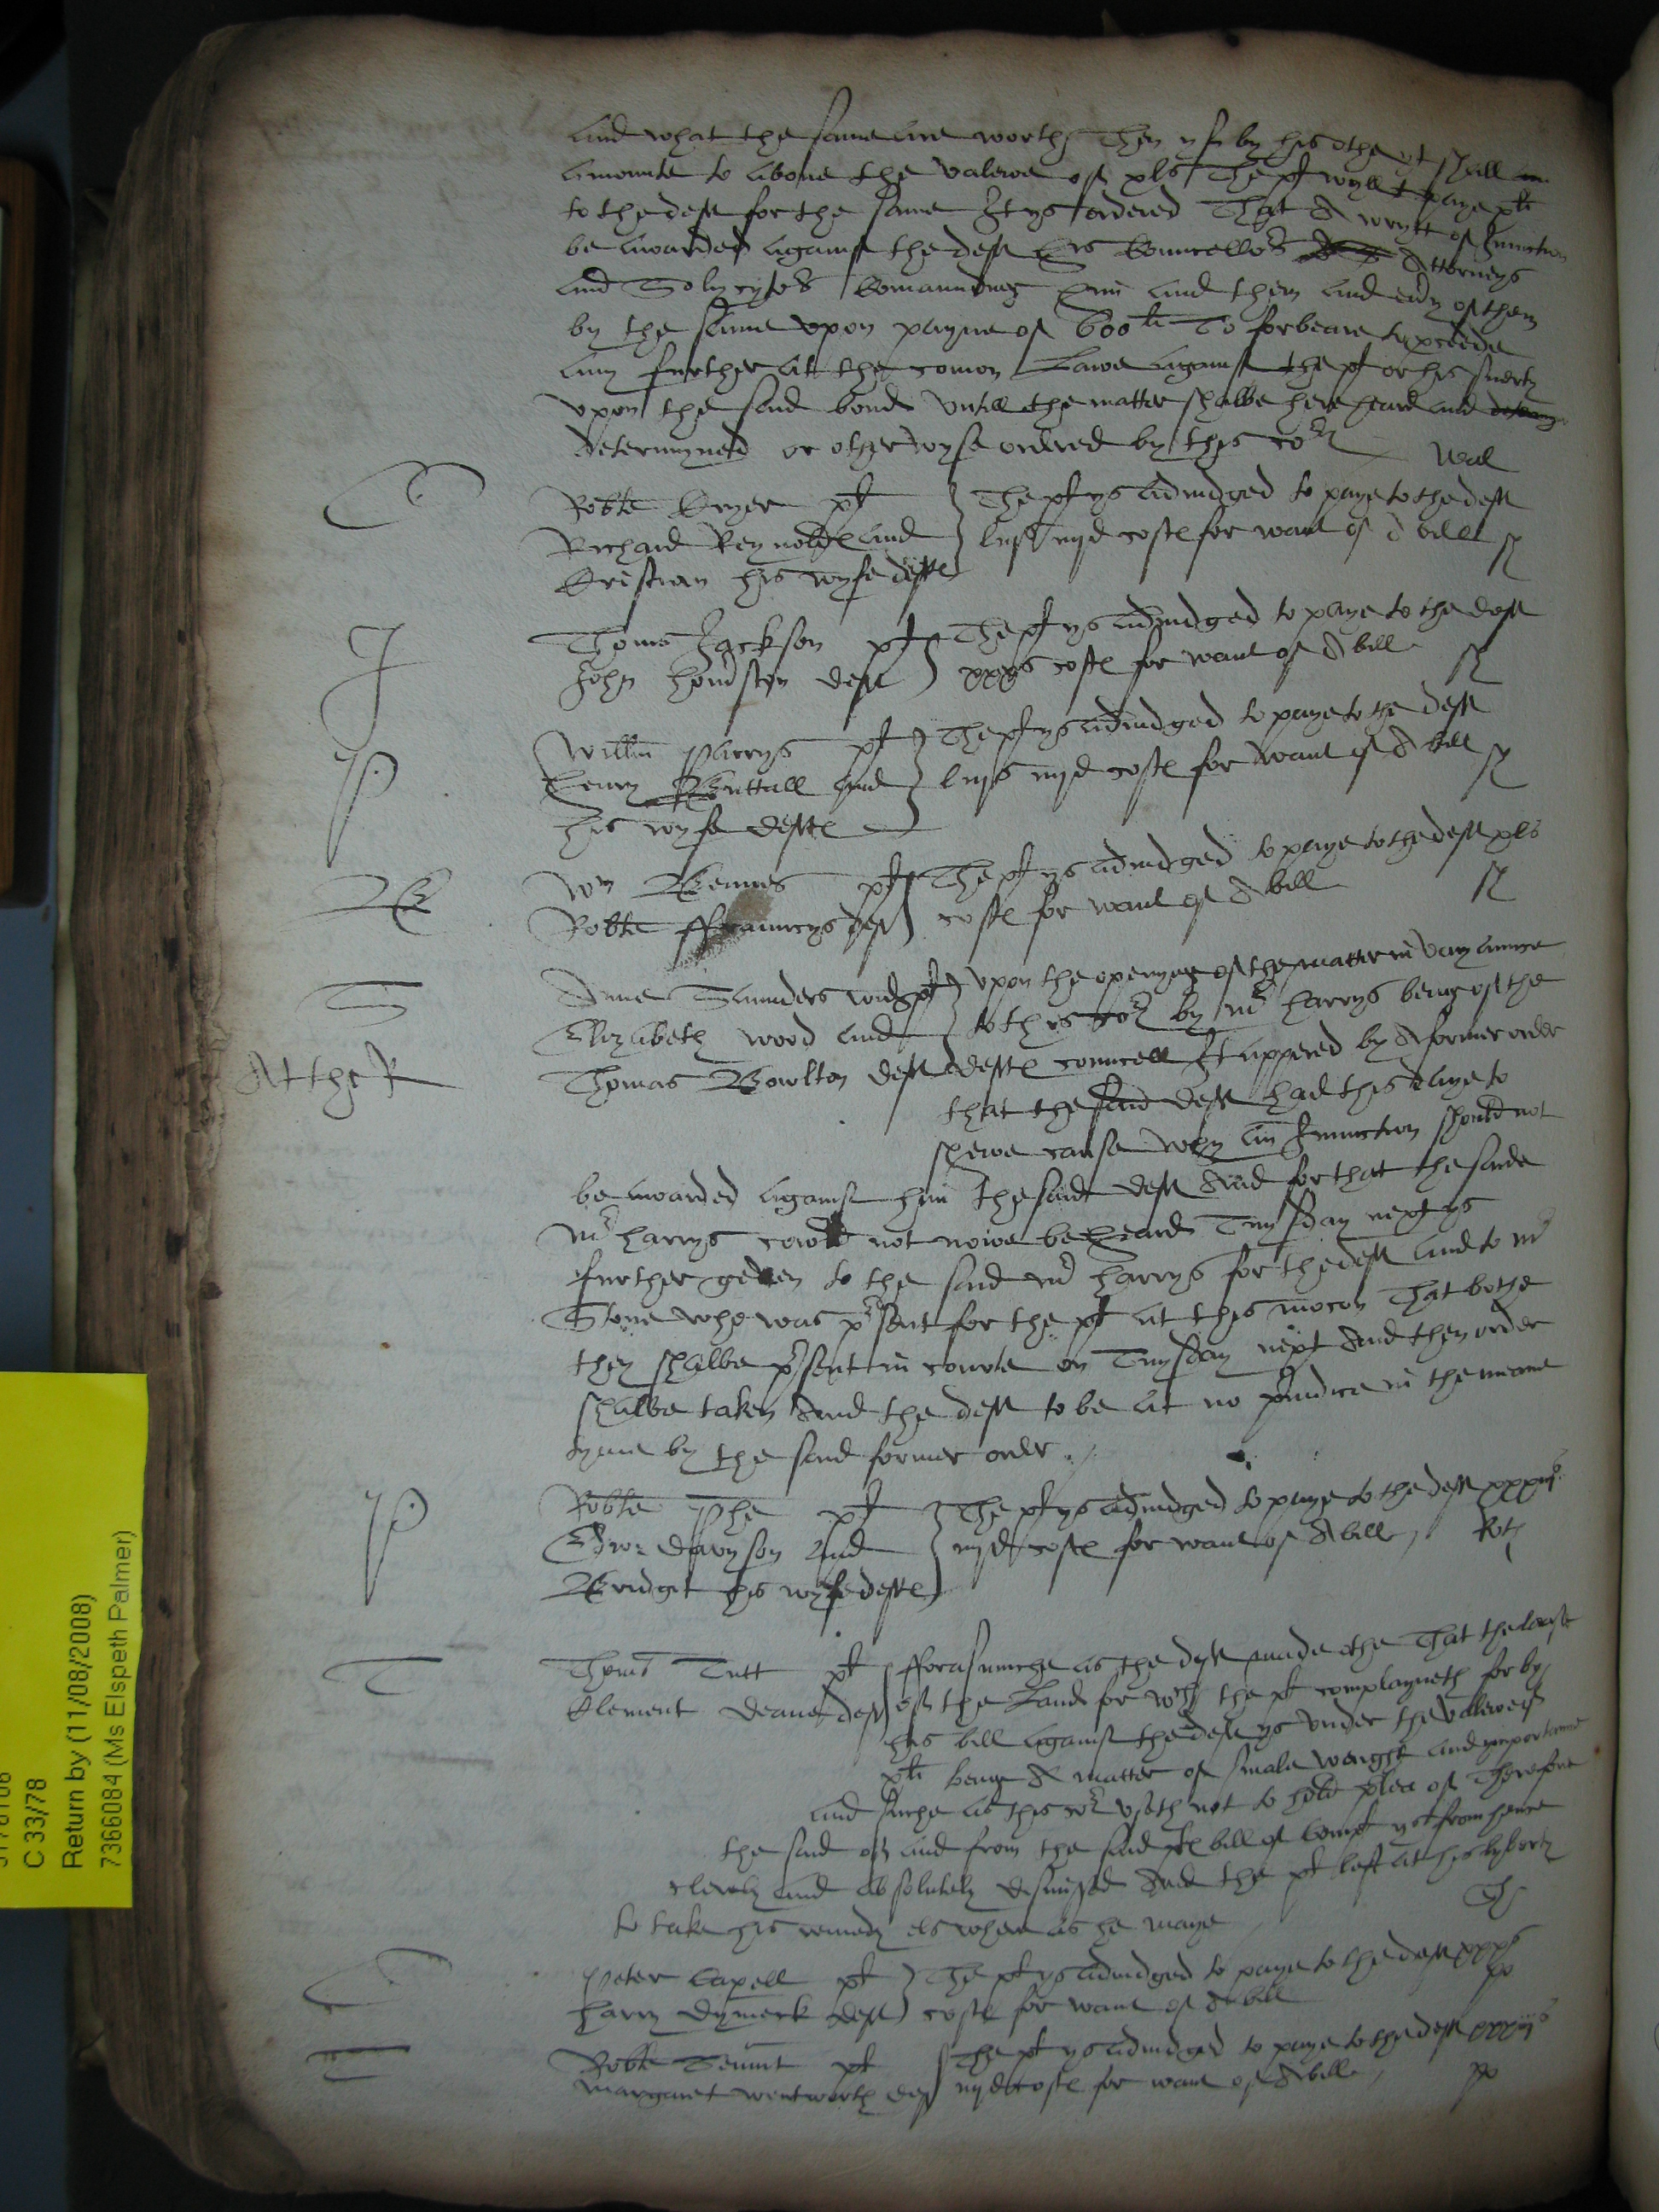 and what the same are worth Then yf by his othe yt shall
amounte to above the valewe of xls The pl wyll paye xli
to the deft for the same It ys ordered That A wrytt of Iniunction
be awarded against the deft his Councello's Attorneys
and Solycyto's Comaundyng him and them and evy of them
by the same upon payne of 600li To forbeare to pceede
any further att the comon Lawe against the pl or his suerty
upon the said bond untill the matter shalbe here heard and
determyned or otherwyse ordered by this co't Wal
C
Robte Cryer pl
Richard Reynold and
Cristian his wyfe deftes
The pl ys adiudged to paye to the deft
costes for want of A bill
J
Thoms Jackson pl
John deft
The pl ys adiudged to paye to the deft
costes for want of A bill
P
Willm Parrys pl
Henry Buttall and
his wyfe deftes
The pl ys adiudged to paye to the deft
iiijd costes for want of A bill
B
Wm pl
Robte ffrauncys deft
The pl ys adiudged to paye to the deft xls
costes for want of A bill
S
At the R
Anne Saunders wid pl
Elizabeth Wood and
Thomas Bowlton deft
upon the openyng of the matter in varyaunce
to this co't by Mr Harrys being of the
deftes councell It appered by A former order
that the said deft had this daye to
shewe cause why an Iniunction should not
be awarded against him the said deft And for that the saide
Mr Harrys cowld not nowe be heard Tuysday next ys
further geven to the said Mr Harrys for the deft and to Mr
Stone who was p'sent for the pl at this mocon That bothe
they shalbe p'sent in courte on Tuysday next And then order
shalbe taken And the deft to be at no piudice in the meane
tyme by the said former order
P
Robte Phe pl
Edw: Davyson and
Bridget his wyfe deftes
The pl ys adiudged to paye to the deft
iiijd costes for want of A bill Rot
T
Thoms Tutt pl
Clement Deane deft
fforasmuche as the deft made othe That the
of the Land for wch the pl complayneth for by
his bill against the deft ys under the valewe of
xli being A matter of smale weight and importaunce
and suche as this co't useth not to hold plea of Therefore
the said of and from the said pl bill of Complt ys from hence
clerely and absolutely dismyssed And the pl left at his lyberty
to take his remedy els where as he maye
C
Peter Capell pl
Harry Dymock deft
The pl ys adiudged to paye to the deft xxxs
costes for want of A bill po
T
Robte Tennt pl
Margaret Wentworth deft
The pl ys adiudged to paye to the deft
iiijd costes for want of A bill po
C 33/78
Return by (11/08/2008)
7366084 (Ms Elspeth Palmer)